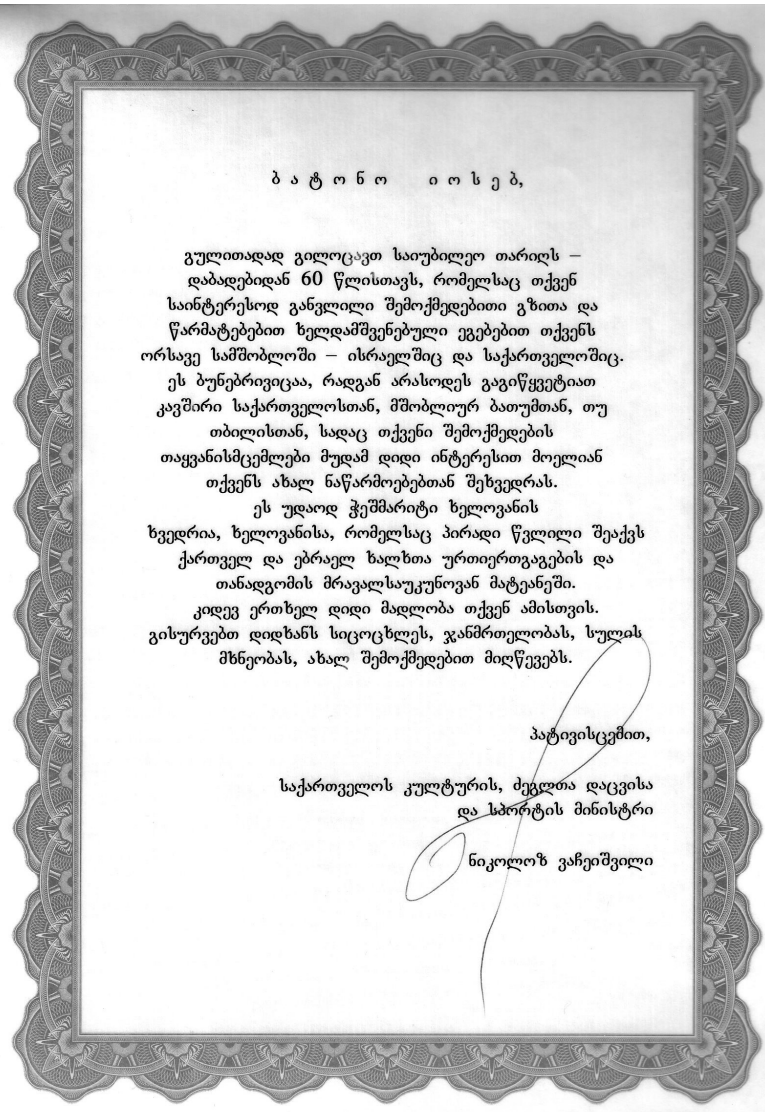 ბატონო იოსებ,
გულითადად გილოცავთ საიუბილეო თარიღს –
დაბადებიდან 60 წლისთავს, რომელსაც თქვენ
საინტერესოდ განვლილი შემოქმედებითი გზითა და
წარმატებებით ხელდამშვენებული ეგებებით თქვენს
ორსავე სამშობლოში – ისრაელშიც და საქართველოშიც.
ეს ბუნებრივიცაა, რადგან არასოდეს გაგიწყვეტიათ
კავშირი საქართველოსთან, მშობლიურ ბათუმთან, თუ
თბილისთან, სადაც თქვენი შემოქმედების
თაყვანისმცემლები მუდამ დიდი ინტერესით მოელიან
თქვენს ახალ ნაწარმოებებთან შეხვედრას.
ეს უდაოდ ჭეშმარიტი ხელოვანის
ხვედრია, ხელოვანისა, რომელსაც პირადი წვლილი შეაქვს
ქართველ და ებრაელ ხალხთა ურთიერთგაგების და
თანადგომის მრავალსაუკუნოვან მატეანეში.
კიდევ ერთხელ დიდი მადლობა თქვენ ამისთვის.
გისურვებთ დიდხანს სიცოცხლეს, ჯანმრთელობას, სულის
მხნეობას, ახალ შემოქმედებით მიღწევებს.
პატივისცემით,
საქართველოს კულტურის, ძეგლთა დაცვისა
და სპორტის მინისტრი
ნიკოლოზ ვაჩეიშვილი